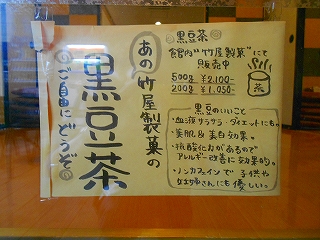 あの竹屋製菓の
黒豆茶
ご自由にどうぞ
黒豆茶
館内"竹屋製菓"にて
販売中
500g ¥2,100-
200g ¥1,050-
茶
黒豆のいいこと
・血液サラサラ・ダイエットにも。
・美肌&美白効果。
・抗酸化力があるので
アレルギー改善に効果的。
・ノンカフェインで子供や
妊婦さんにも優しい。